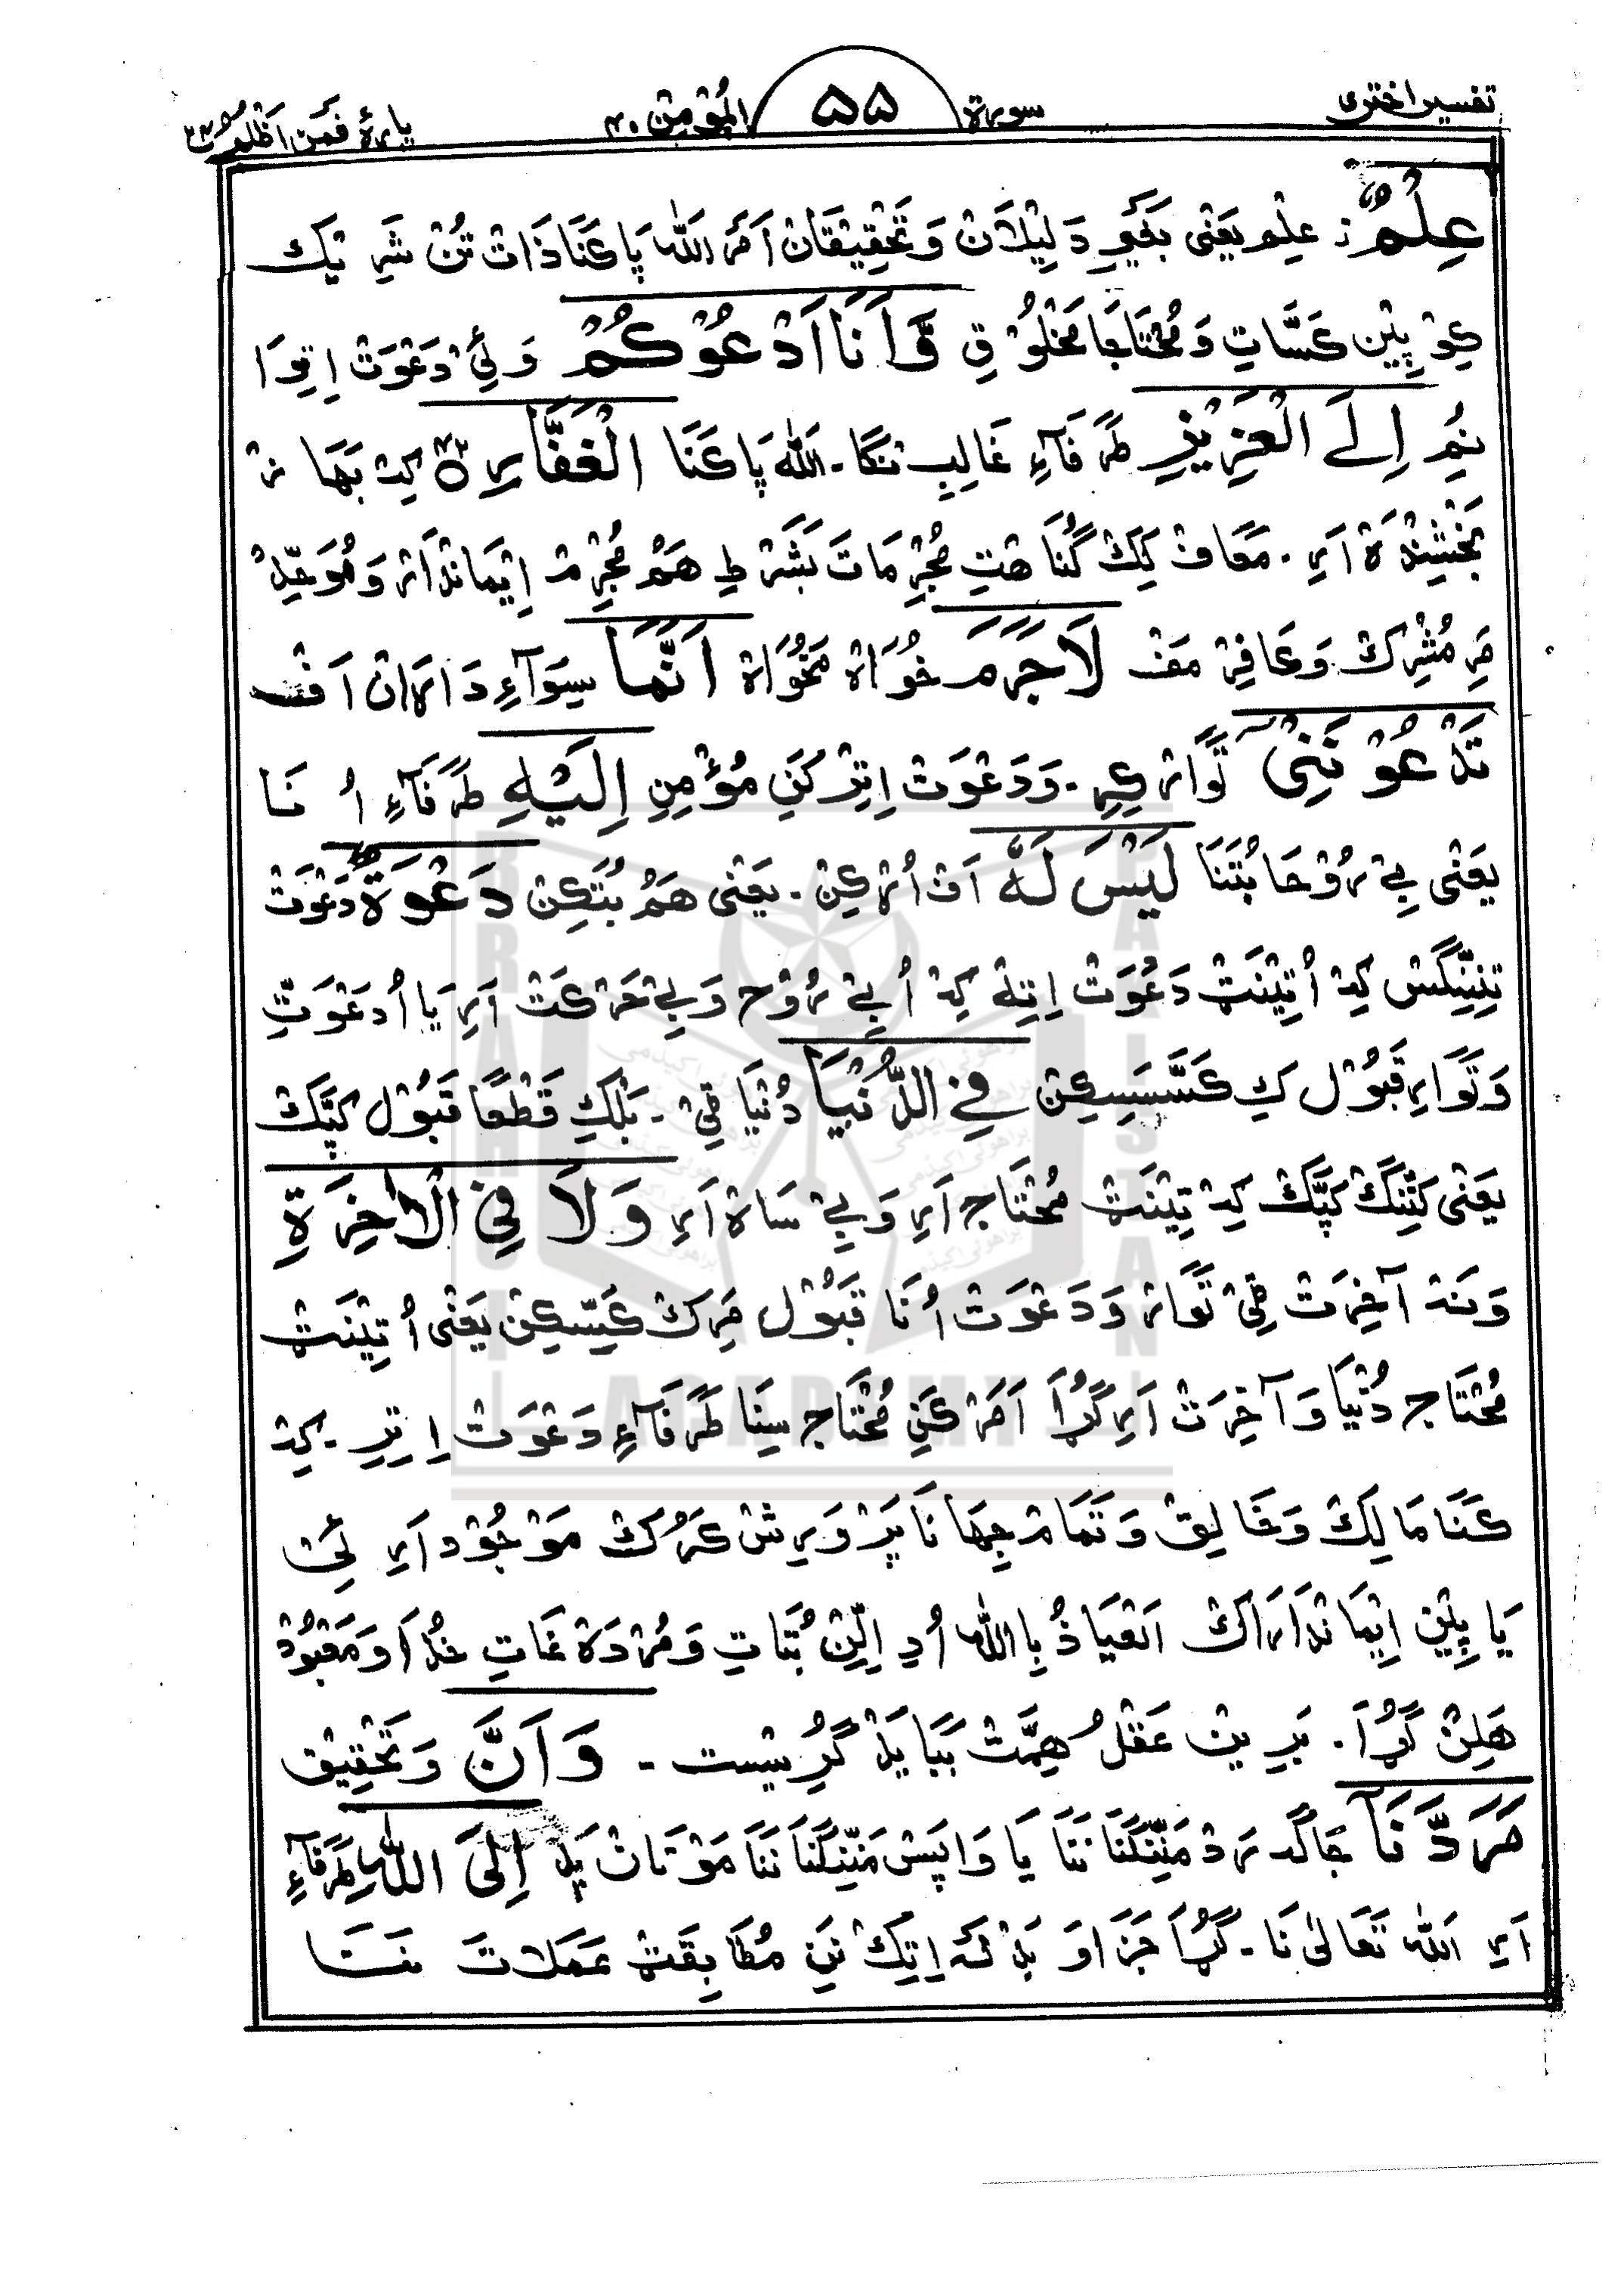 تفسیر اختری سورة ۵۵ المؤمن ۴۰ پارۂ فمن اظلم
عِلْمٌ ز عِلْم یَعْنِی بَغَیرِ دَلِیْلَانْ وَ تَحْقِیْقَانْ اَمَر اَللّٰه پَاکَنَا ذَاتْ تُنْ شَرِیْک
کِوْ پِیْن کَسَّاتِ وَ مُحْتَاجَا مَخْلُوْقِ وَّاَنَا اَدْعُوْكُمْ وَ لِیْ دَعْوَتْ اِتِوَا
نُمِ اِلَى الْعَزِیْزِ طَرَفَآءِ غَالِبِ نَنَّا۔ اَللّٰه پَاکَنَا الْغَفَّارِ ۴۲ کِہ بَھَازْ
بَخْشِنْدَہ اَرِ۔ مَعَافْ کِیْک گُنَاھتِ مُجْرِمَاتَ بَشَرْطِ ھَمْ مُجْرِمْ اِیْمَانْدَارْ وَ مُوَحِّدْ
مَرِ مُشْرِکْ وَ کَافِرْ مَفْ لَاجَرَمَ خُوَاہْ مَخُوَاہْ اَنَّمَا سِوَآءِ دَارَانْ اَفْ
تَدْعُوْنَنِیْ تَوَّارْ کِرِ۔ وَ دَعْوَتْ اِتِرْ کَنِ مُؤْمِنِ اِلَیْهِ طَرَفَآءِ اُنَا
یَعْنِی بِیْ رُوْحَا بُتَنَا لَیْسَ لَهٗ اَفْ اُرْکِنْ۔ یَعْنِی ھَمْ بُتَکِنْ دَعْوَةٌ دَعْوَتْ
تِنِنْگَسْ کِہ اُتِیْنَتْ دَعْوَتْ اِتِہ کِہ اُ بِیْ رُوْح وَ بِیْ حَرَکَتْ اَرِ یَا اُ دَعْوَتِ
وَ تَوَارِ قَبُوْل کِ کَسَّسِکِنْ فِی الدُّنْیَا دُنْیَا ٹِیْ۔ بَلْکِ قَطْعًا قَبُوْل کَپَّکْ
یَعْنِی کَنِنْگْ کَپَّکْ کِہ تِیْنَتْ مُحْتَاج اَرِ وَ بِیْ سَاہ اَرِ وَلَا فِی الْاٰخِرَةِ
وَ نَہ آخِرَتْ ٹِیْ تَوَارْ وَ دَعْوَتْ اُنَا قَبُوْل مَرِکْ کَسِّکِنْ یَعْنِی اُ تِیْنَتْ
مُحْتَاج دُنْیَا وَ آخِرَتْ اَرِ گُڑَا اَمَرْ کَنِ مُحْتَاج سِنَا طَرَفَآءِ دَعْوَتْ اِتِرِ۔ کِہ
کَنَا مَالِکْ وَ خَالِقْ وَ تَمَامْ جِہَانَا پَرْوَرِشْ کَرُکْ مَوْجُوْد اَرِ لِیْ
یَا پِیْن اِیْمَانْدَارَاکْ اَلْعَیَاذُ بِاللّٰه اُدِ اِلِّنْ بُتَاتِ وَ مُرْدَہ غَاتِ خُدَا وَ مَعْبُوْدْ
ھَلِنْ گُڑَا۔ بَرِیْن عَقْل ھِمَّتْ بَبَایَدْ گِرِیْست۔ وَاَنَّ وَ تَحْقِیْق
مَرَدَّنَآ جَاگَہ رَدْ مَنِّنْگَنَا نَنَا یَا وَاپَسْ مَنِّنْگَنَا نَنَا مَوْتَانْ پَدْ اِلَى اللّٰهِ طَرَفَآءِ
اَرِ اَللّٰه تَعَالٰی نَا۔ گُڑَا جَزَا وَ بَدْلَہ اِتِکْ نَنِ مُطَابِقَتْ عَمَلَاتَ نَنَا